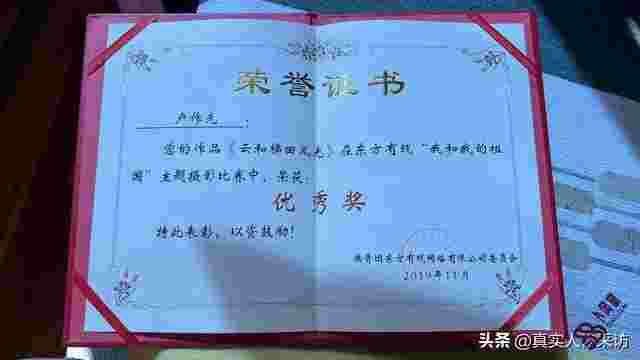 荣誉证书
卢作元：
您的作品《云和梯田风光》在东方有线“我和我的祖
国”主题摄影比赛中，荣获：
优秀奖
特此表彰，以资鼓励！
共青团东方有线网络有限公司委员会
2019年11月
头条 @真实人，采访